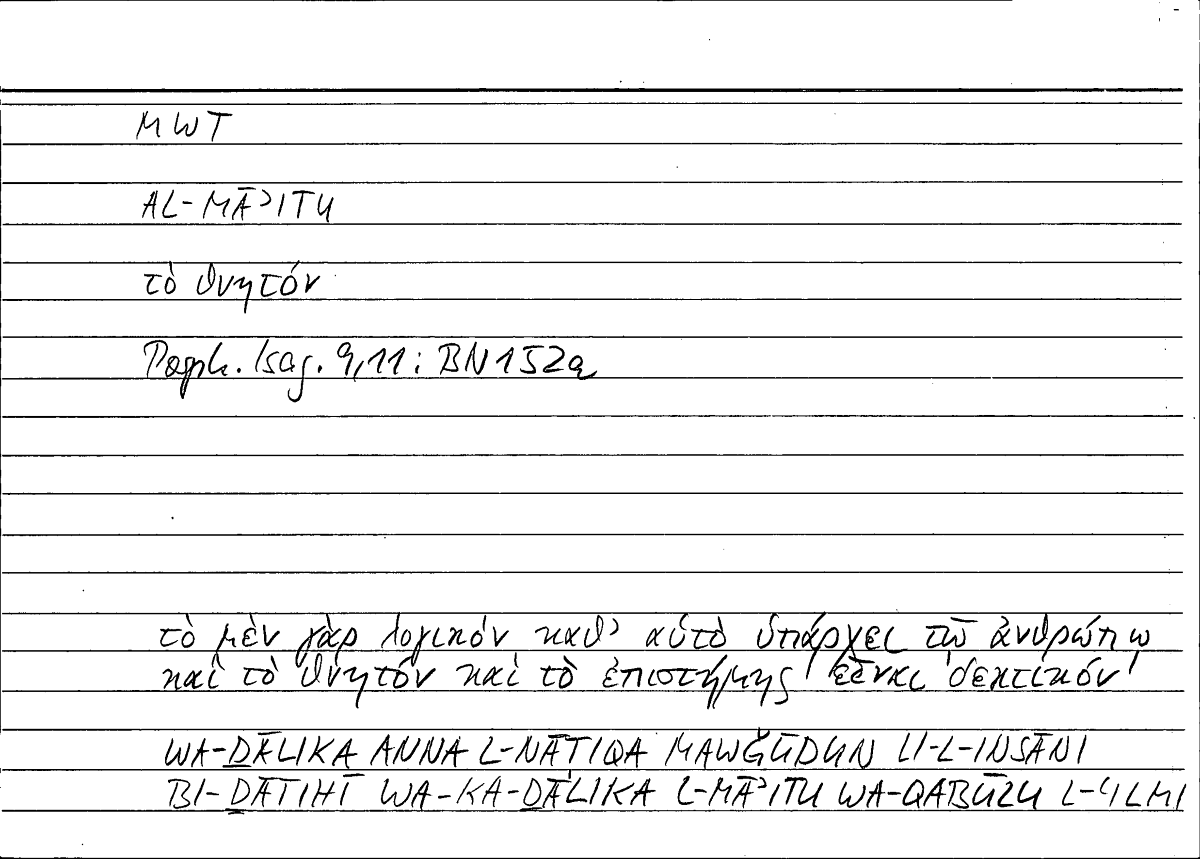 MWT
AL-MĀʾITU
τὸ θνητόν
Porph. Isag. 9,11: BN152a
τὸ μὲν γὰρ λογικόν καθ’ αὑτὸ ὑπάρχει τῷ ἀνθρώπῳ
καὶ τὸ θνητόν καὶ τὸ ἐπιστήμης εἶναι δεκτικόν
WA-ḎĀLIKA ANNA L-NĀṬIQA MAWǦŪDUN LI-L-INSĀNI
BI-ḎĀTIHĪ WA-KA-ḎĀLIKA L-MĀʾITU WA-QABŪLU L-ʿILMI